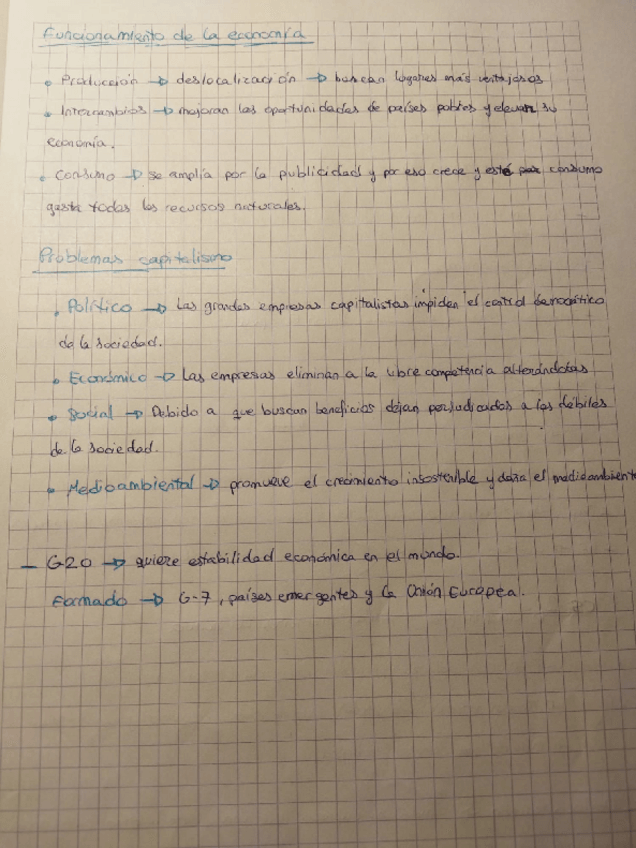 Funcionamiento de la economía
• Producción → deslocalización → buscan lugares más ventajosos
• Intercambios → mejoran las oportunidades de países pobres y elevan su
economía.
• Consumo → se amplía por la publicidad y por eso crece y esté consumo
gasta todos los recursos naturales.
Problemas capitalismo
• Político → Las grandes empresas capitalistas impiden el control democrático
de la sociedad.
• Económico → Las empresas eliminan a la libre competencia alterándolas
• Social → Debido a que buscan beneficios dejan perjudicados a los débiles
de la sociedad.
• Medioambiental → promueve el crecimiento insostenible y daña el medioambiente
— G20 → quiere estabilidad económica en el mundo.
Formado → G-7, países emergentes y la Unión Europea.